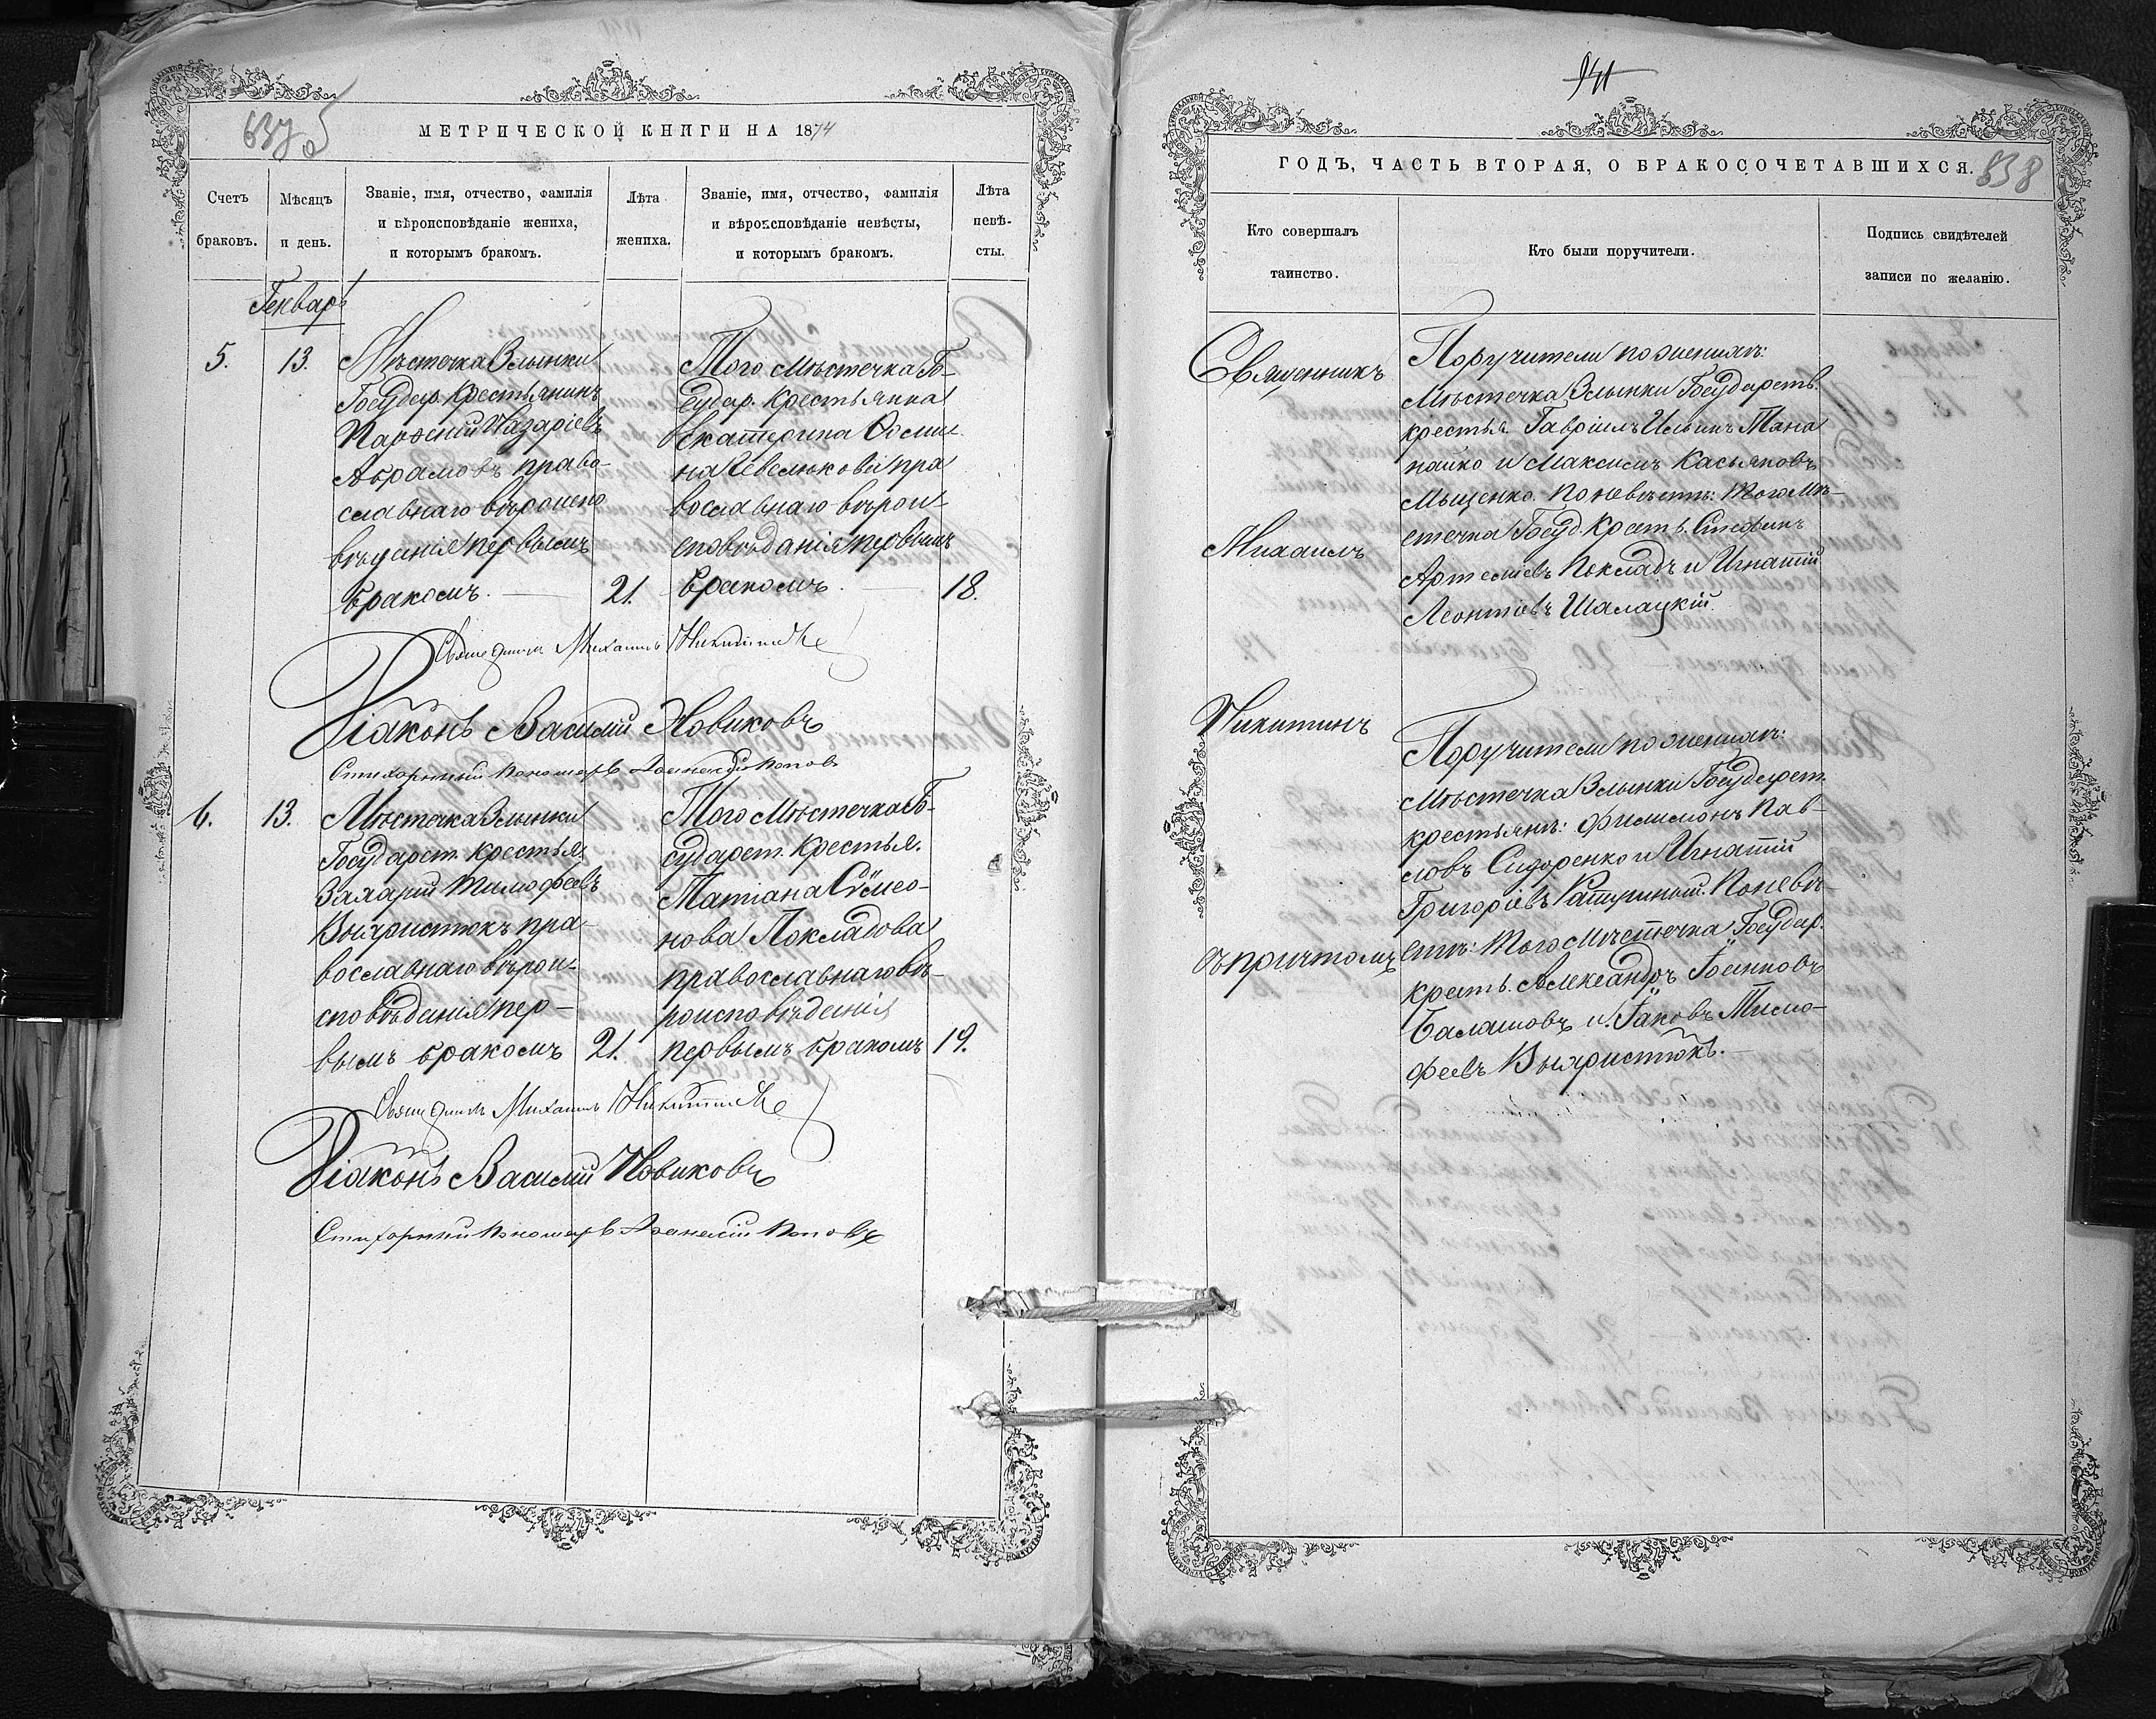 637
МЕТРИЧЕСКОЙ КНИГИ НА 1874
Счетъ
браковъ.
Мѣсяцъ
и день.
Званіе, имя, отчество, фамилія
и вѣроисповѣданіе жениха,
и которымъ бракомъ.
Лѣта
жениха.
Званіе, имя, отчество, фамилія
и вѣроисповѣданіе невѣсты,
и которымъ бракомъ.
Лѣта
невѣ-
сты.
Генварь
5.
13.
Мѣстечка Злынки
Государ. Крестьянинъ
Назаріевъ
Абрамовъ право-
славнаго вѣроиспо
вѣданія первымъ
бракомъ.
21.
Того Мѣстечка Го-
судар. Крестьянка
Екатерина Осипо-
на православнаго вѣрои-
сповѣданія первымъ
бракомъ.
18.
Священникъ Михаилъ Никитинъ
Діаконъ Василій Новиковъ
Стихарный Пономарь Афанасій Поповъ
6.
13.
Мѣстечка Злынки
Государст. крестья.
Захарій Тимофеевъ
Выхристюкъ пра-
вославнаго вѣрои-
сповѣданія пер-
вымъ бракомъ
21.
Того Мѣстечка Го-
сударст. Крестья.
Татіана Сѷмео-
нова Покладова
православнаго вѣ-
роисповѣданія
первымъ бракомъ
19.
Священникъ Михаилъ Никитинъ
Діаконъ Василій Новиковъ
Стихарный Пономарь Афанасій Поповъ
941
ГОДЪ, ЧАСТЬ ВТОРАЯ, О БРАКОСОЧЕТАВШИХСЯ.
838
Кто совершалъ
таинство.
Кто были поручители.
Подпись свидѣтелей
записи по желанію.
Священникъ
Михаилъ
Никитинъ
съ причтомъ
Поручители по женихѣ:
Мѣстечка Злынки Государств.
крестья. Гавріилъ Ильинъ Тана
найко и Максимъ Касьяновъ
Мыценко. По невѣстѣ: того Мѣ-
стечка Госуд. Крест. Стефанъ
Артеміевъ Покладъ и Игнатій
Леонтіевъ Шалацкій.
Поручители по женихѣ:
Мѣстечка Злынки Государст.
крестьянъ: Филимонъ Пав-
ловъ Сидоренко и Игнатій
Григоріевъ По невѣ-
стѣ: того Мѣстечка Государ.
крест. Александръ Іоанновъ
Балашовъ и Іаковъ Тимо-
феевъ Выхристюкъ.